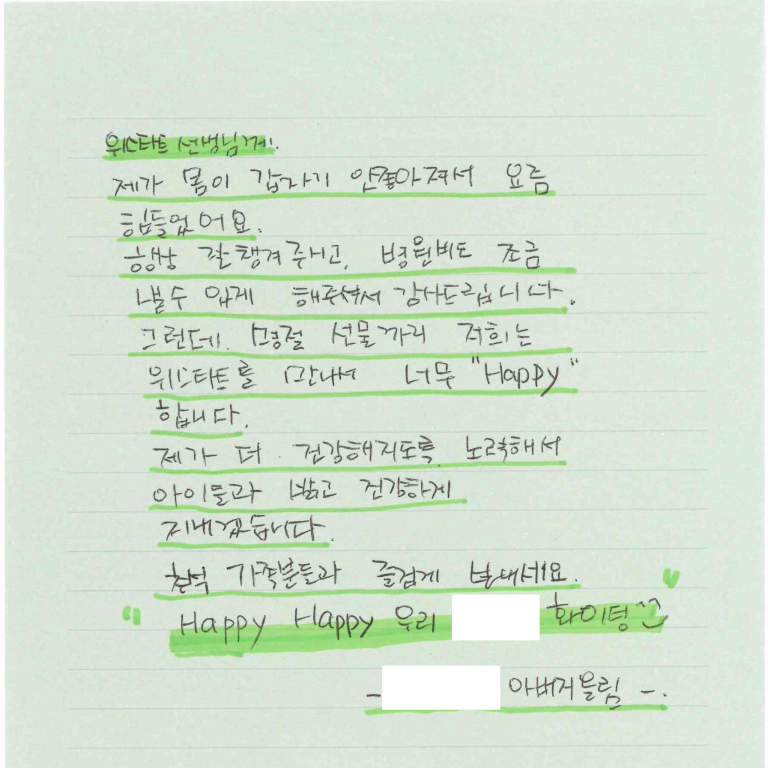 위스타트 선생님께.
제가 몸이 갑자기 안좋아져서 요즘
힘들었어요.
항상 잘챙겨주시고, 병원비도 조금
낼수 있게 해주셔서 감사드립니다.
그런데. 명절 선물까지 저희는
위스타트를 만나서 너무 "Happy"
합니다.
제가 더 건강해지도록 노력해서
아이들과 밝고 건강하게
지내겠습니다.
추석 가족분들과 즐겁게 보내세요.
"Happy Happy 우리 화이팅"
- 아버지올림 -.